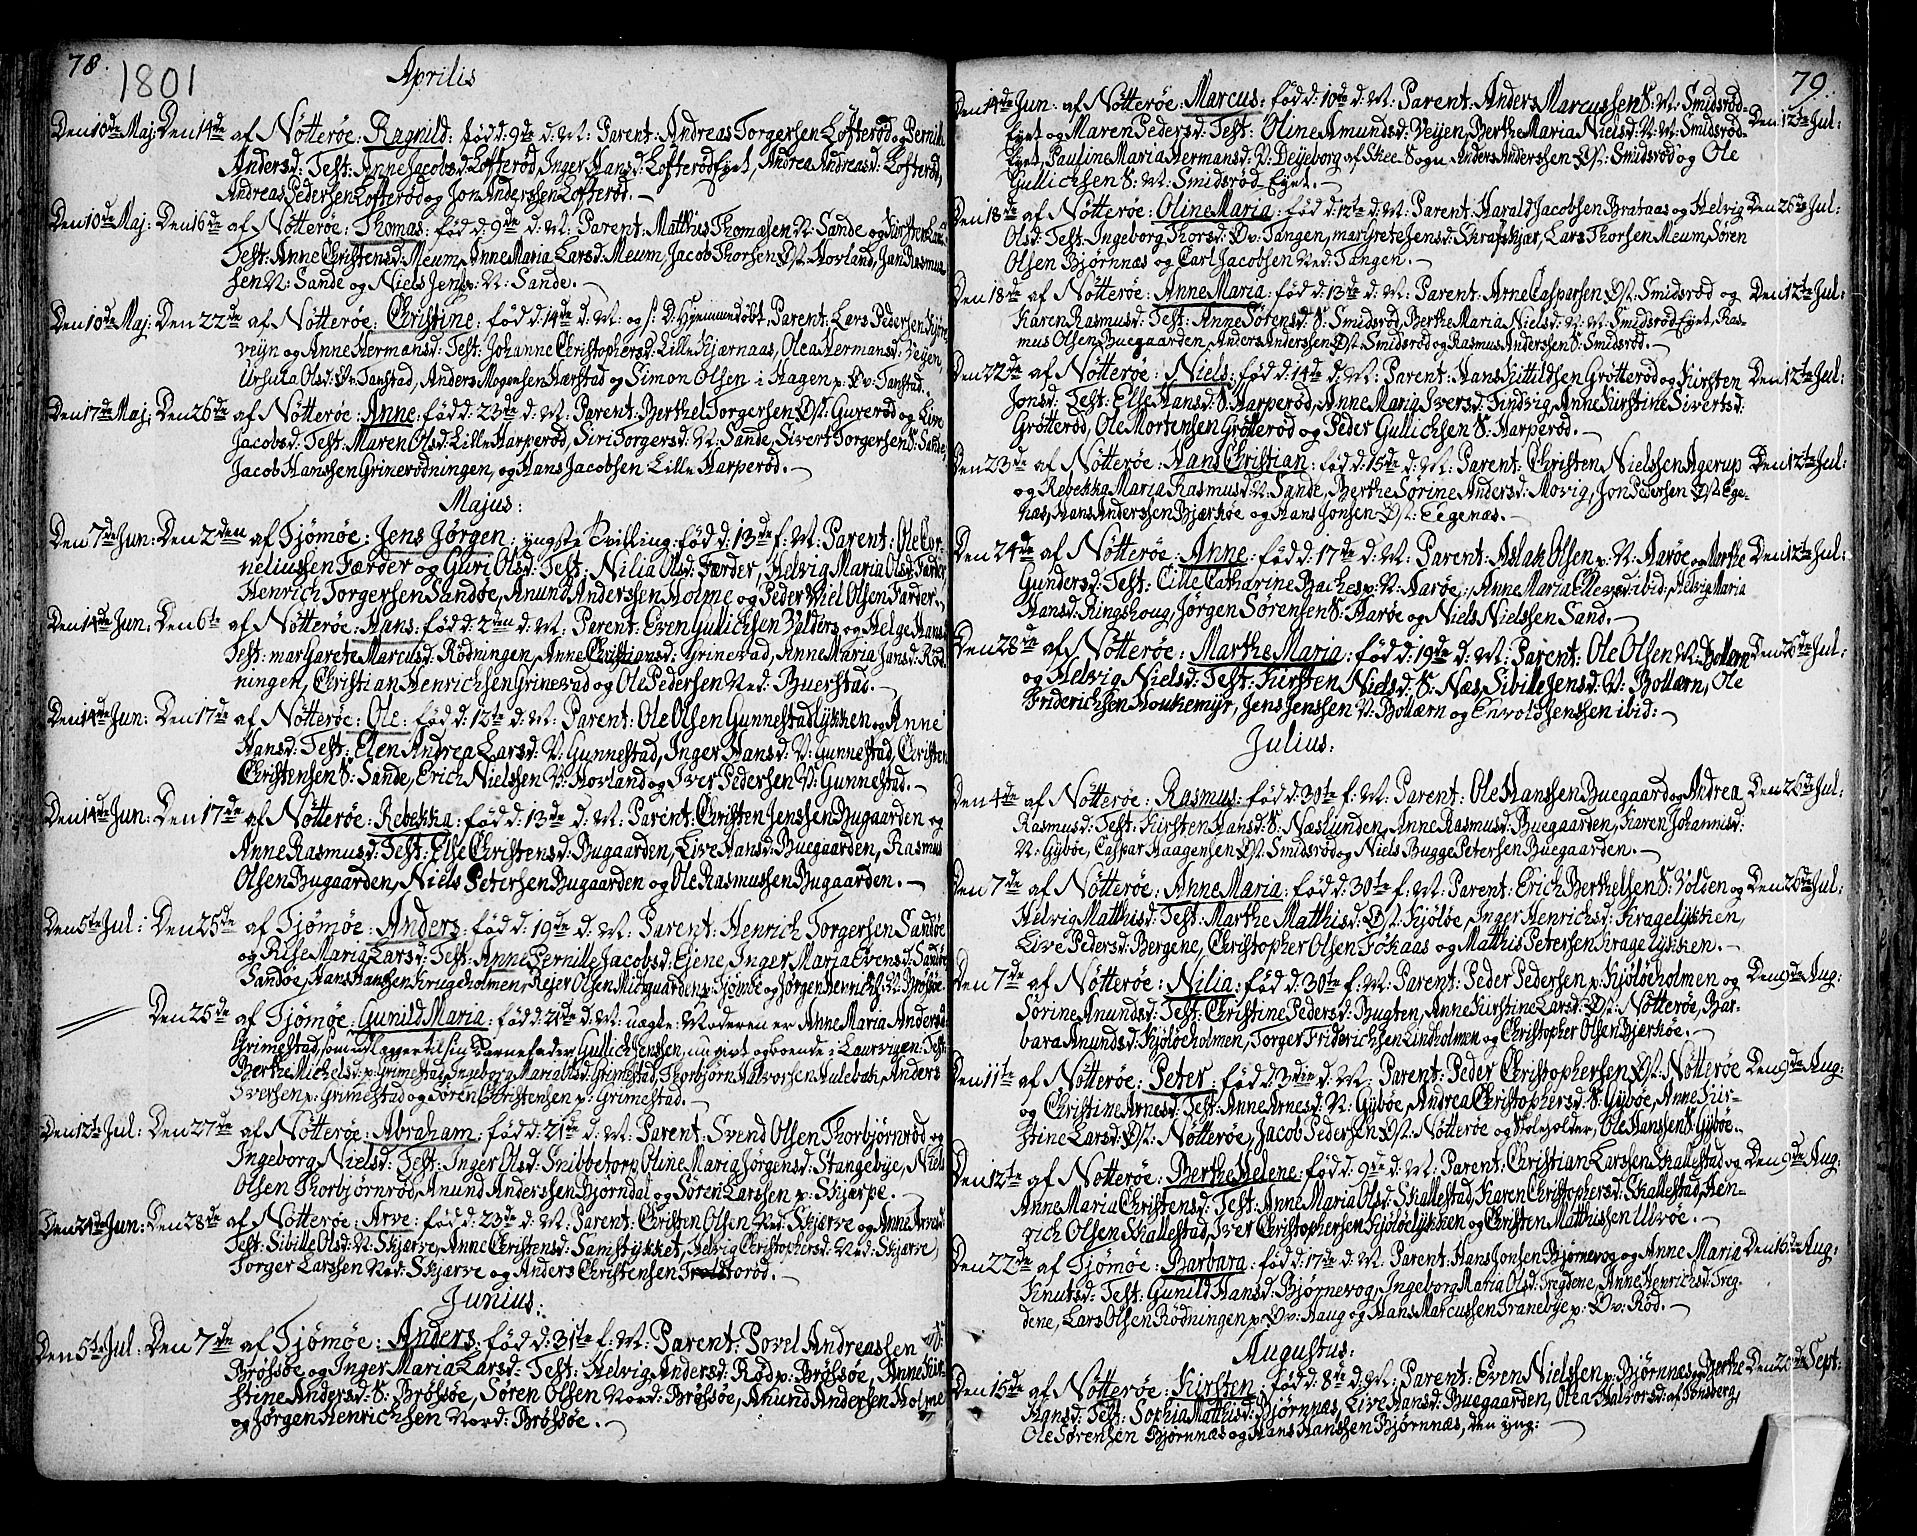 78.
1801
Aprilis
Den 10de Maj: Den 14de af Nötterøe: Ragnild: fød d: 9de d: M: Parent: Andreas Torgersen Lofterød og Pernille
Andersd: Test: Anne Jacobsd: Lofterød, Inger Hansd: Lofterød Eyet, Andrea Andreasd: Lofterød,
Andreas Pedersen Lofterød og Jon Anderssen Lofterød.
Den 10de Maj: Den 16de af Nötterøe: Thomas: fød d: 9de d: M: Parent: Matthis Thomasen N: Sande og Kirsten
Test: Anne Christensd: Meum, Anne Maria Larsd: Meum, Jacob Thorsen Øst: Hovland, Jan Rasmus-
sen N: Sande og Niels Jensen N: Sande.
Den 10de Maj: Den 22de af Nötterøe: Christine: fød d: 14de d: M: og Hjemmedøbt, Parent: Lars Pedersen
veyn og Anne Hermansd: Test: Johanne Christophersd: Lille Kjærnaas, Olea Hermansd: Veyen,
Ursula Olsd: Øv: Tanstad, Anders Mogensen Hærstad og Simon Olsen i Hagen p: Øv: Tanstad.
Den 17de Maj: Den 26de af Nötterøe: Anne: fød d: 23de d: M: Parent: Berthel Torgersen Øst: Gurerød og Live
Jacobsd: Test: Maren Olsd: Lille Harperød, Siri Torgersd: N: Sande, Sivert Torgersen S: Sande,
Jacob Hanssen Grinerødningen, og Hans Jacobsen Lille Harperød.
Majus:
Den 7de Jun: Den 2den af Tjømøe: Jens Jørgen: yngste Tvilling: fød d: 13de f: M: Parent: Ole Cor-
neliussen Færder og Guri Olsd: Test: Nilia Olsd: Færder, Helvig Maria Olsd: Færder
Henrich Torgersen Sandøe, Anund Anderssen Holme og Peder Olsen Færder.
Den 14de Jun: Den 6te af Nötterøe: Hans: fød d: 2den d: M: Parent: Even Gullichsen Bolders og Helge Hansd:
Test: Margarete Marcusd: Rödningen, Anne Christiansd: Grinerød, Anne Maria Jansd: Röd-
ningen, Christian Henrichsen Grinerød og Ole Pedersen Ned: Buerstad.
Den 14de Jun: Den 17de af Nötterøe: Ole: fød d: 12te d: M: Parent: Ole Olsen Gunnestadløkken og Anne
Hansd: Test: Elen Andrea Larsd: N: Gunnestad, Inger Hansd: N: Gunnestad, Christen
Christensen S: Sande, Erich Nielssen N: Hovland og Iver Pedersen N: Gunnestad.
Den 14de Jun: Den 17de af Nötterøe: Rebekka: fød d: 13de d: M: Parent: Christen Jenssen Bugaarden og
Anne Rasmusd: Test: Else Christensd: Bugaarden, Live Hansd: Buegaarden, Rasmus
Olsen Bugaarden, Niels Petersen Bugaarden og Ole Rasmussen Bugaarden.
Den 5te Jul: Den 25de af Tjømøe: Anders: fød d: 19de d: M: Parent: Henrich Torgersen Sandøe
og Else Maria Larsd: Test: Anne Pernille Jacobsd: Ejene, Inger Maria Evensd: Sandøe
Sandøe, Hans Hanssen Krugeholmen, Rejer Olsen Midgaarden p: Tjømøe og Jørgen Henrichs: N: Brøtsøe.
Den 25de af Tjømøe: Gunild Maria: fød d: 21de d: M: uægte: Moderen er Anne Maria Andersd:
Grimestad, som udlægger til sin Barnefader Gullich Jenssen, nu givt og boende i Laurvigen: Test:
Berthe Michelsd: p: Grimestad, Ingeborg Maria Olsd: Grimestad, Thorbjørn Halvorsen Hulebak, Anders
Iversen p: Grimestad og Søren Christensen p: Grimestad.
Den 12te Jul: Den 27de af Nötterøe: Abraham: fød d: 21de d: M: Parent: Svend Olsen Thorbjørnrød og
Ingeborg Nielsd: Test: Inger Olsd: Snibbetorp, Oline Maria Jørgensd: Stangebye, Niels
Olsen Thorbjørnrød, Anund Anderssen Bjørndal og Søren Larssen p: Skjærpe.
Den 24de Jun: Den 28de af Nötterøe: Arve: fød d: 23de d: M: Parent: Christen Olsen Ned: Skjærve og Anne Arvesd:
Test: Sibille Olsd: N: Skjærve, Anne Christensd: Samstykket, Helvig Christophersd: Ned: Skjærve,
Torger Larssen Ned: Skjærve og Anders Christensen Trolstorød.
Junius:
Den 5te Jul: Den 7de af Tjømøe: Anders: fød d: 31te f: M: Parent: Povel Andreassen
Brøtsøe og Inger Maria Larsd: Test: Helvig Andersd: Rød p: Brøtsøe, Anne Kir-
stine Andersd: S: Brøtsøe, Søren Olsen Nord: Brøtsøe, Anund Andersen Holme
og Jørgen Henrichsen Nord: Brøtsøe.
79.
Den 14de Jun: af Nötterøe: Marcus: fød d: 10de d: M: Parent: Anders Marcussen S: M: Smidsrød-
Eyet og Maren Pedersd: Test: Oline Amundsd: Veijen, Berthe Maria Nielsd: N: M: Smidsrød- Den 12te Jul:
Eyet, Pauline Maria Hermansd: N: Deyeborg af Skee Sogn Anders Anderssen Øst: Smidsrød og Ole
Gullichsen S: M: Smidsrød Eyet.
Den 18de af Nötterøe: Oline Maria: fød d: 12te d: M: Parent: Harald Jacobsen Brataas og Helvig Den 26de Jul:
Olsd: Test: Ingeborg Thorsd: Øv: Tangen, Margrete Jensd: Skrafskjær, Lars Thorsen Meum, Søren
Olsen Bjørnnæs og Carl Jacobsen Ned: Tangen.
Den 18de af Nötterøe: Anne Maria: fød d: 13de d: M: Parent: Arne Casparsen Øst: Smidsrød og Den 12te Jul:
Karen Rasmusd: Test: Anne Sørensd: S: Smidsrød, Berthe Maria Nielsd: N: M: Smidsrød Eyet, Ras-
mus Olsen Buegaarden, Anders Anderssen Øst: Smidsrød og Rasmus Anderssen S: Smidsrød.
Den 22de af Nötterøe: Niels: fød d: 14de d: M: Parent: Hans Kittildsen Grøtterød og Kirsten Den 12te Jul:
Jonsd: Test: Else Hansd: S: Harperød, Anne Maria Iversd: Tindvig, Anne Kirstine Sivertsd:
Grøtterød, Ole Mortensen Grøtterød og Peder Gullichsen S: Harperød.
Den 23de af Nötterøe: Hans Christian: fød d: 15de d: M: Parent: Christen Nielssen Agerup Den 12te Jul:
og Rebekka Maria Rasmusd: N: Sande, Berthe Sørine Andersd: Movig, Jon Pedersen Øst: Ege-
næs, Hans Anderssen Bjærkøe og Hans Jonsen Øst: Eegenæs.
Den 24de af Nötterøe: Anne: fød d: 17de d: M: Parent: Aslak Olsen p: N: Aarøe og Marthe Den 12te Jul:
Gundersd: Test: Cille Catharine Baches p: N: Aarøe, Anne Maria Ellevsd: ibid: Helvig Maria
Hansd: Ringshoug, Jørgen Sørensen S: Aarøe og Niels Nielssen Sand.
Den 28de af Nötterøe: Marthe Maria: fød d: 19de d: M: Parent: Ole Olsen N: Bollærn Den 26de Jul:
og Helvig Nielsd: Test: Kirsten Nielsd: S: Næs, Sibille Jensd: V: Bollærn, Ole
Friderichsen Houkemyr, Jens Jenssen V: Bollærn og Envold Jenssen ibid:
Julius:
Den 4de af Nötterøe: Rasmus: fød d: 30te f: M: Parent: Ole Hanssen Buegaard og Andrea Den 26de Jul:
Rasmusd: Test: Kirsten Hansd: S: Næslunden, Anne Rasmusd: Buegaarden, Karen Johannisd:
N: Gybøe, Caspar Haagensen Øst: Smidsrød og Niels Bugge Petersen Buegaarden.
Den 7de af Nötterøe: Anne Maria: fød d: 30te f: M: Parent: Erich Berthelsen S: Volden og Den 26de Jul:
Helvig Matthisd: Test: Marthe Matthisd: Øst: Kjøløe, Inger Henrichsd: Kragelykken,
Live Pedersd: Bergene, Christopher Olsen Føkaas og Matthis Petersen Kragelykken.
Den 7de af Nötterøe: Nilia: fød d: 30te f: M: Parent: Peder Pedersen p: Kjøløeholmen og Den 9de Aug:
Sørine Anundsd: Test: Christine Pedersd: Bugten, Anne Kirstine Larsd: Øst: Nötterøe, Bar-
bara Anundsd: Kjøløeholmen, Torger Friderichsen Lindholmen og Christopher Olsen Bjærkøe.
Den 11te af Nötterøe: Peter: fød d: 3die d: M: Parent: Peder Christophersen Øst: Nötterøe Den 9de Aug:
og Christine Arnesd: Test: Anne Arnesd: N: Gybøe, Andrea Christophersd: S: Gybøe, Anne Kir-
stine Larsd: Øst: Nötterøe, Jacob Pedersen Øst: Nötterøe og Skoleholder, Ole Hanssen S: Gybøe.
Den 12te af Nötterøe: Berthe Helene: fød d: 9de d: M: Parent: Christian Larssen Skallestad og Den 9de Aug:
Anne Maria Christensd: Test: Anne Maria Olsd: Skallestad, Karen Christophersd: Skallestad, Hen-
rich Olsen Skallestad, Iver Christophersen Kjøløelykken og Christen Matthissen Ulvøe.
Den 22de af Tjømøe: Barbara: fød d: 17de d: M: Parent: Hans Jonsen Bjørnevog og Anne Maria Den 16de Aug:
Knutsd: Test: Gunild Hansd: Bjørnevog, Ingeborg Maria Olsd: Tregdene, Anne Henrichsd: Treg-
dene, Lars Olsen Rödningen p: Øv: Haug og Hans Marcussen Tranebye p: Øv: Röd.
Augustus:
Den 15de af Nötterøe: Kirsten: fød d: 8de d: M: Parent: Even Nielssen p: Bjørnnæs og Berthe Den 20de Sept:
Hansd: Test: Sophia Matthisd: Bjørnnæs, Live Hansd: Buegaarden, Olea Halvorsd: af Tønsberg,
Ole Sørensen Bjørnnæs og Hans Hanssen Bjørnnæs, den yng: